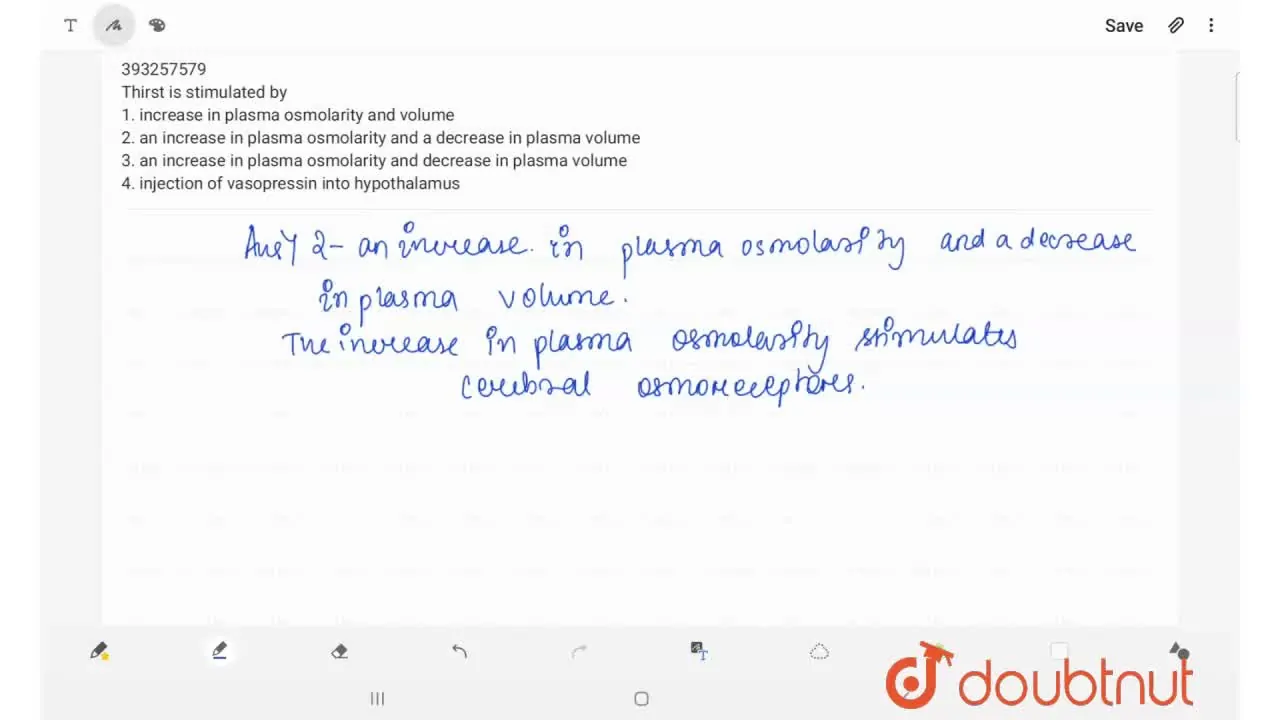 T
Save
393257579
Thirst is stimulated by
1. increase in plasma osmolarity and volume
2. an increase in plasma osmolarity and a decrease in plasma volume
3. an increase in plasma osmolarity and decrease in plasma volume
4. injection of vasopressin into hypothalamus
Ans 2- an increase in plasma osmolarity and a decrease
in plasma volume.
The increase in plasma osmolarity stimulates
cerebral osmoreceptores.
doubtnut